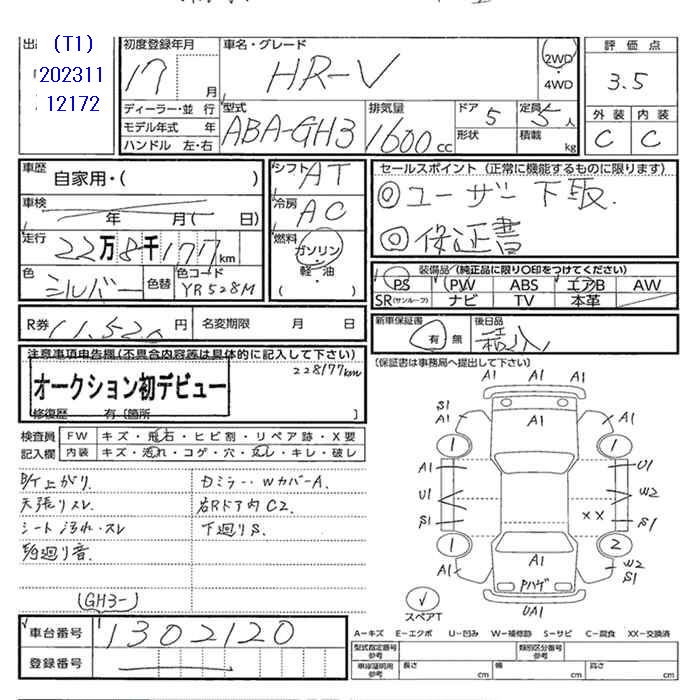 (T1)
202311
12172
初度登録年月
17
月
車名・グレード
HR-V
2WD
4WD
評価点
3.5
外装 内装
C C
ディーラー・並行
モデル年式 年
ハンドル 左・右
型式
ABA-GH3
排気量
1600cc
ドア
5
形状
定員
5人
積載
kg
車歴
自家用・(
車検
年 月( 日)
走行
22万8千177km
色
シルバー
色替
色コード
YR528M
シフト
AT
冷房
AC
燃料
ガソリン・
軽・油
( )
セールスポイント(正常に機能するものに限ります)
◎ユーザー下取.
◎保証書
装備品(純正品に限り○印をつけてください)
PS PW ABS エアB AW
SR(サンルーフ) ナビ TV 本革
R券
11,520円
名変期限 月 日
新車保証書
有 無
後日品
積込
(保証書は事務局へ提出して下さい)
注意事項申告欄(不具合内容等は具体的に記入して下さい)
228177km
オークション初デビュー
修復歴 有(箇所 )
検査員
記入欄
FW キズ・飛石・ヒビ割・リペア跡・X要
内装 キズ・汚れ・コゲ・穴・スレ・キレ・破レ
天張りスレ
シート汚れ・スレ
廻り音.
Gミラー・WカバーA.
右Rドア内C2.
下廻りS.
A1
A1 A1
S1
A1
A1
A1
1 1
A1 U1
U1 W2
S1 XX S1
1 2
A1
A1
W2
S1
Pハゲ
UA1
スペアT
(GH3-)
車台番号
1302120
登録番号
A-キズ E-エクボ U-凹み W-補修跡 S-サビ C-腐食 XX-交換済
型式指定番号
参考
類別区分番号
参考
車庫証明用
参考
長さ cm
幅 cm
高さ cm